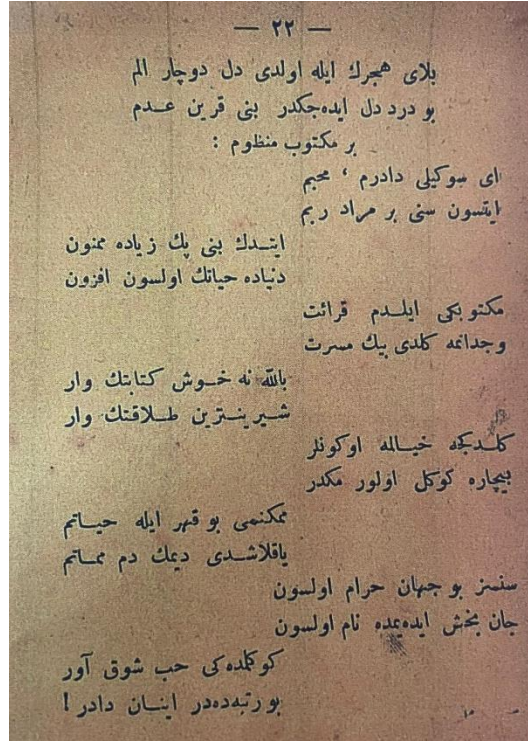 — ٢٢ —
بلای هجرك ایله اولدی دل دوچار الم
بو درد دل ایده‌جكدر بنی قرین عدم
بر مكتوب منظوم :
ای سوكیلی دادرم ، محبم
ایتسون سنی بر مراد ربم
ایتدك بنی پك زیاده ممنون
دنیاده حیاتك اولسون افزون
مكتوبكی ایلدم قرائت
وجدانمه كلدی بیك مسرت
بالله نه خوش كتابتك وار
شیرینترین طلاقتك وار
كلدكجه خیالمه اوكونلر
بیچاره كوكل اولور مكدر
ممكنمی بو قهر ایله حیاتم
یاقلاشدی دیمك دم مماتم
سنسز بو جهان حرام اولسون
جان بخش ایده‌یمده نام اولسون
كوكلمده‌كی حب شوق آور
بو رتبه‌ده‌در اینان دادر !